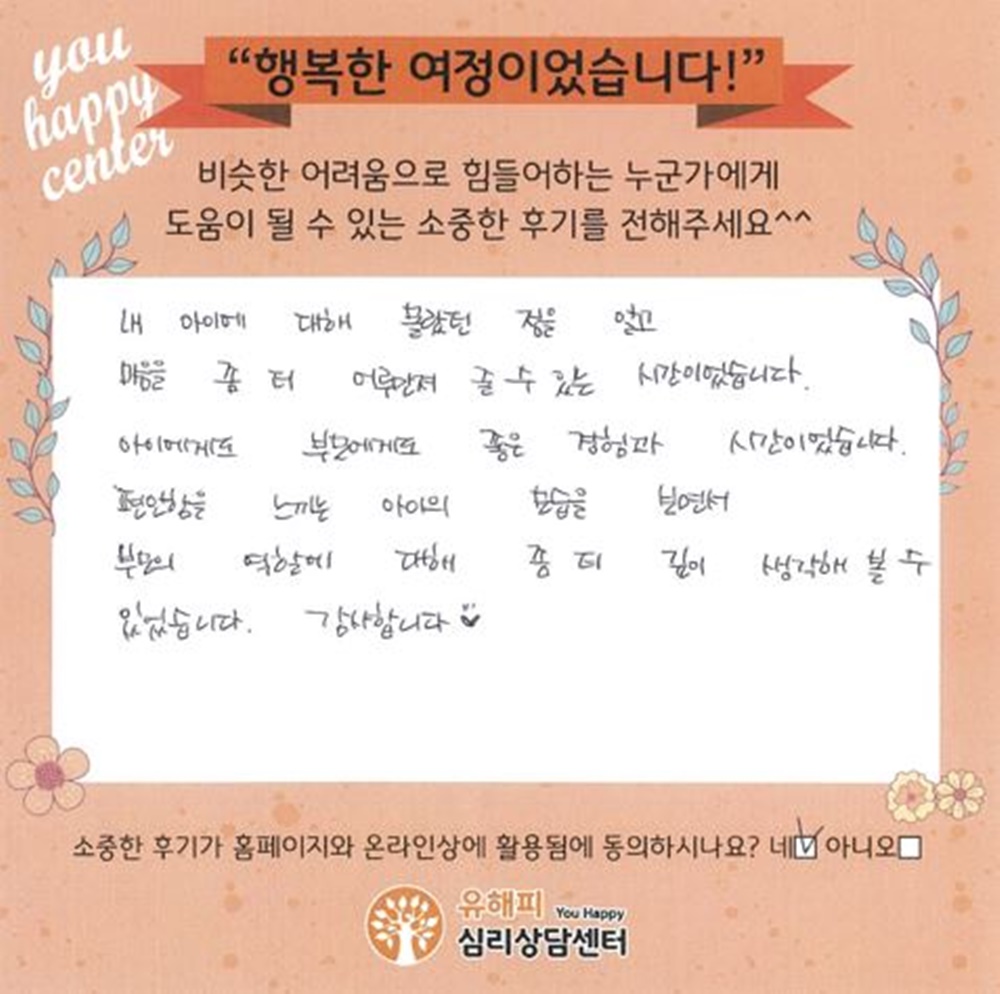 you
happy
center
“행복한 여정이었습니다!”
비슷한 어려움으로 힘들어하는 누군가에게
도움이 될 수 있는 소중한 후기를 전해주세요^^
내 아이에 대해 몰랐던 점을 알고
마음을 좀 더 어루만져 줄 수 있는 시간이었습니다.
아이에게도 부모에게도 좋은 경험과 시간이었습니다.
편안함을 느끼는 아이의 모습을 보면서
부모의 역할에 대해 좀 더 깊이 생각해 볼 수
있었습니다. 감사합니다
소중한 후기가 홈페이지와 온라인상에 활용됨에 동의하시나요? 네☑ 아니오☐
유해피 You Happy
심리상담센터